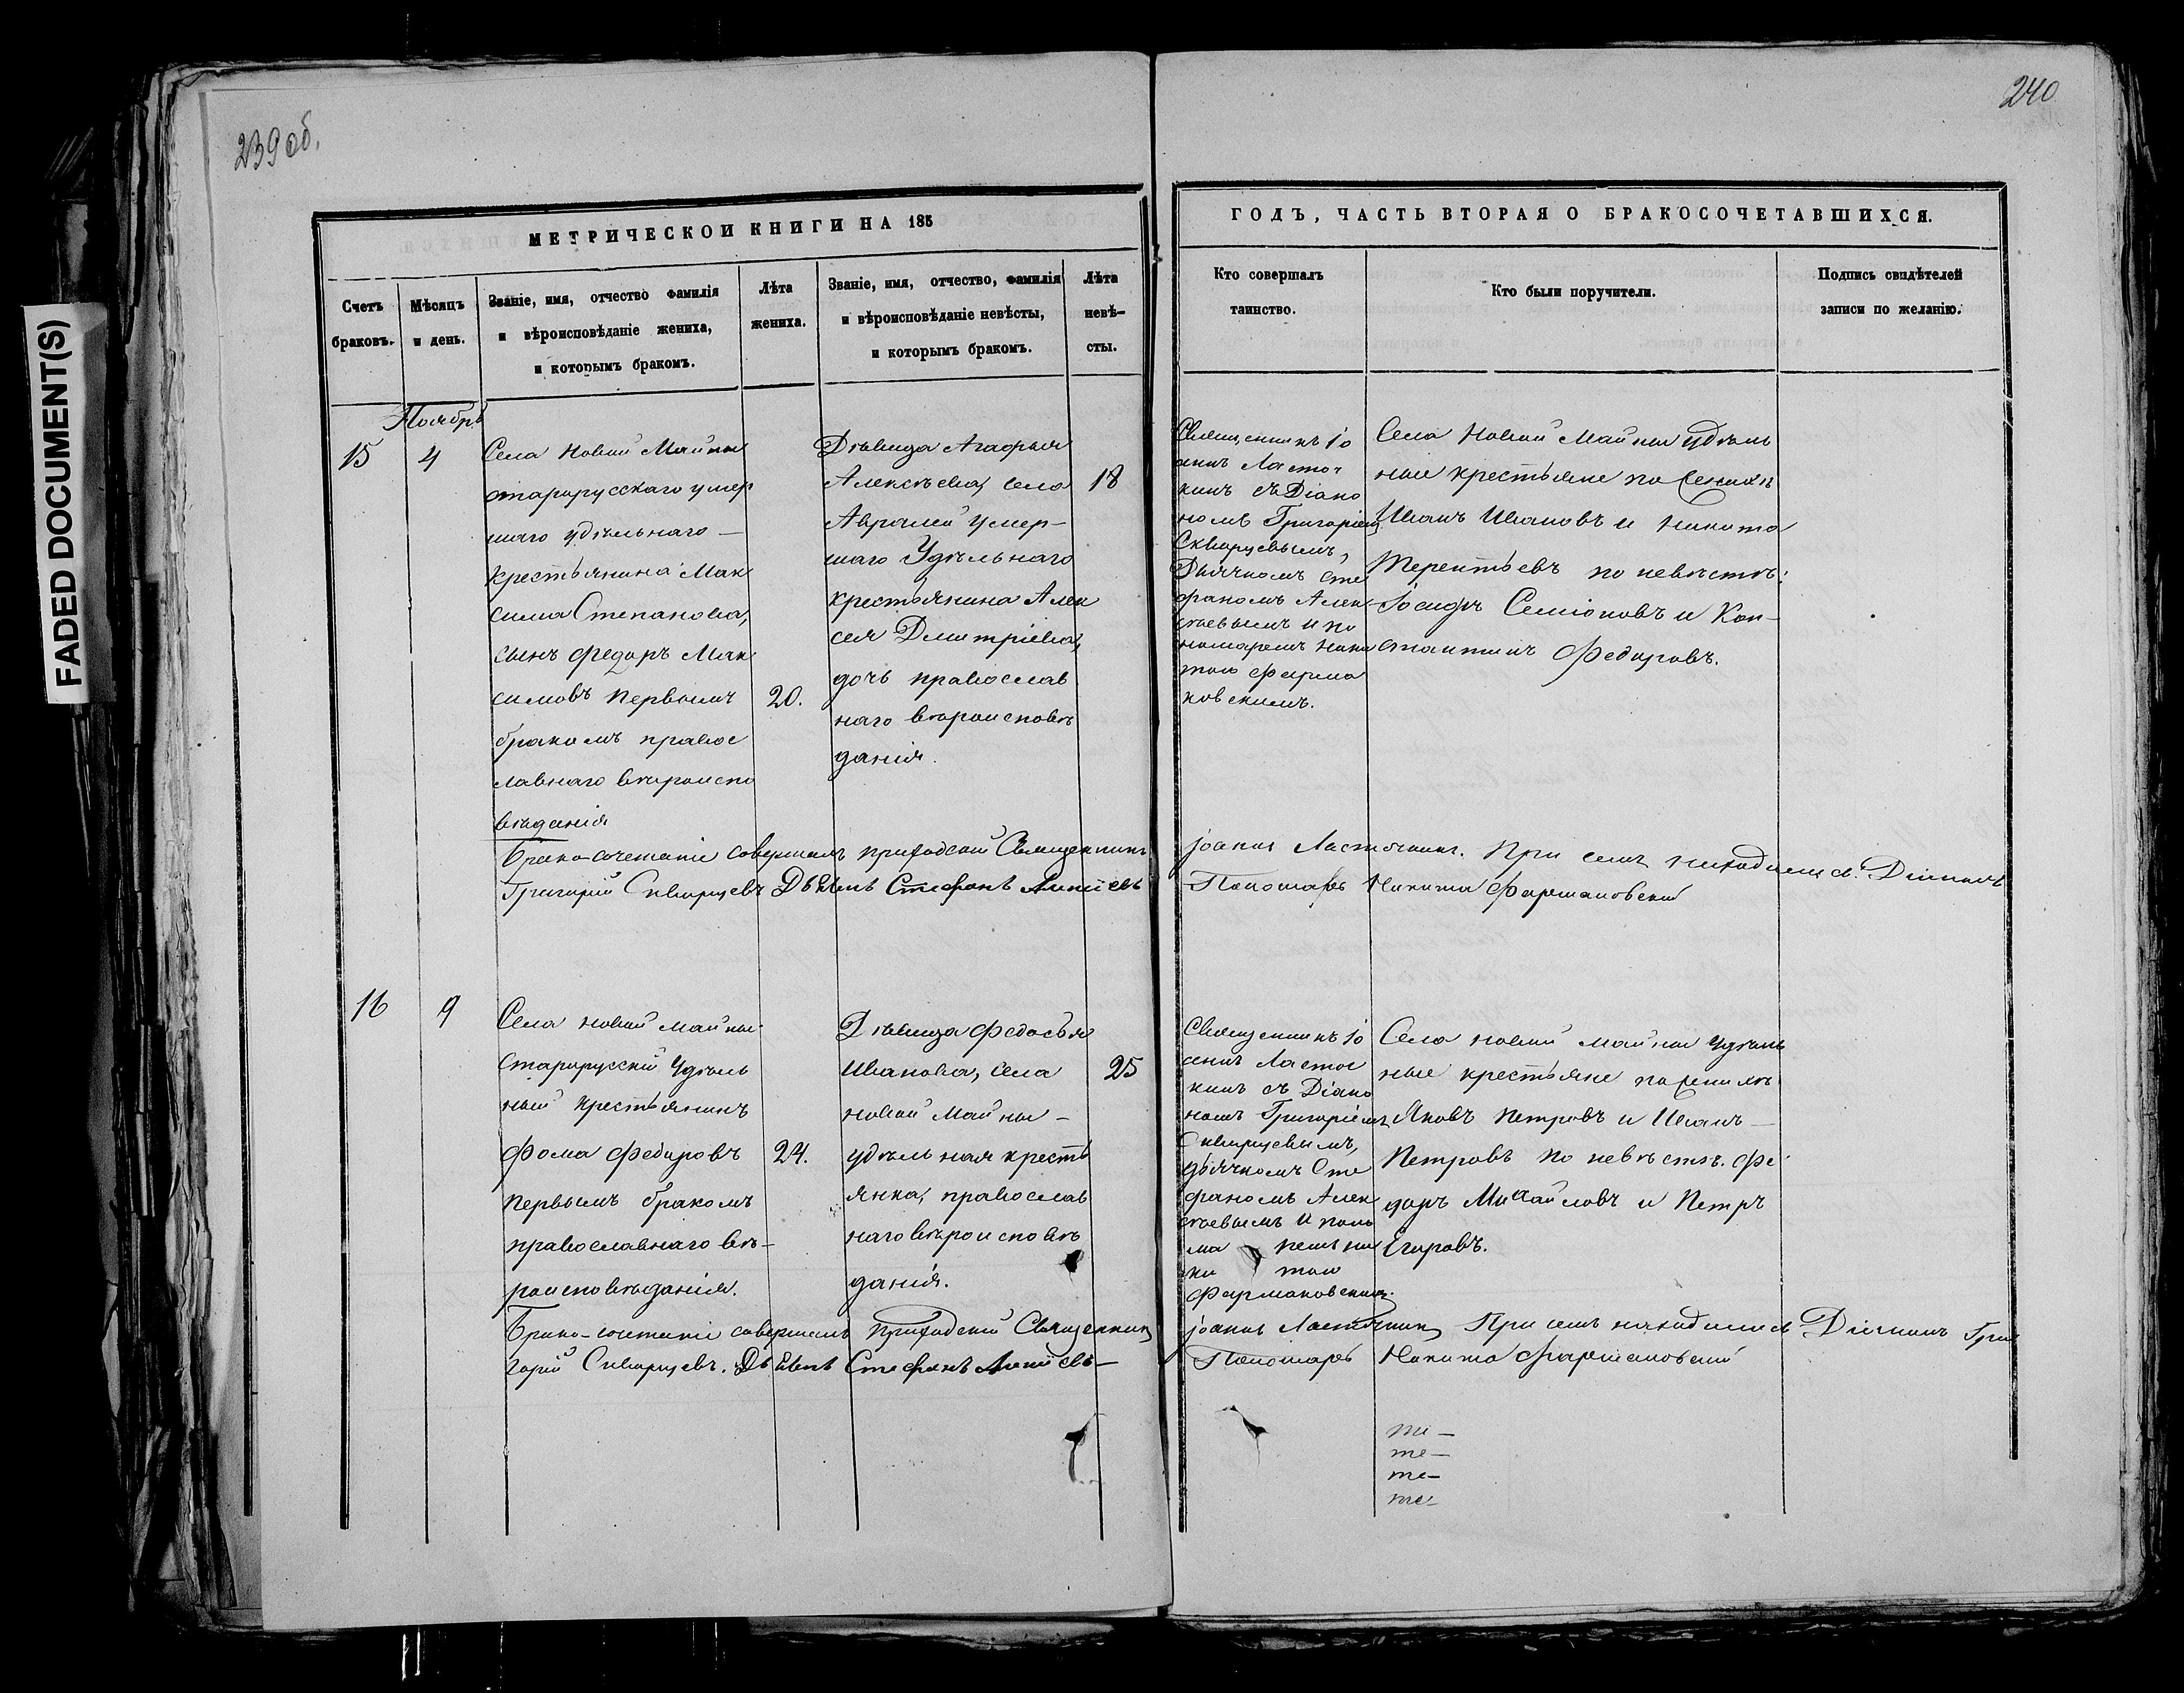 239 об.
240
FADED DOCUMENT(S)
МЕТРИЧЕСКОЙ КНИГИ НА 185
Счетъ
браковъ.
Мѣсяцъ
и день.
Званіе, имя, отчество фамилія
и вѣроисповѣданіе жениха,
и которымъ бракомъ.
Лѣта
жениха.
Званіе, имя, отчество, фамилія
и вѣроисповѣданіе невѣсты,
и которымъ бракомъ.
Лѣта
невѣ-
сты.
ГОДЪ, ЧАСТЬ ВТОРАЯ О БРАКОСОЧЕТАВШИХСЯ.
Кто совершалъ
таинство.
Кто были поручители.
Подпись свидѣтелей
записи по желанію.
Ноябрь
15
4
Села Новой Майны
старорусскаго умер
шаго удѣльнаго —
крестьянина Мак
сима Степанова,
сынъ Федоръ Мак
симовъ первымъ
бракомъ правос
лавнаго вѣроиспо
вѣданія
20.
Дѣвица Агафья
Алексѣева, села
Авралей умер-
шаго Удѣльнаго
крестьянина Алек
сея Дмитріева,
дочь православ
наго вѣроисповѣ
данія.
18
Священникъ Іо
аннъ Ласточ
кинъ съ Діако
номъ Григоріемъ
Скворцевымъ,
Дьячкомъ Сте
фаномъ Алек
сѣевымъ и по
номаремъ Ники
тою Фармо
ковскимъ.
Села Новой Майны удѣль
ные крестьяне по женихѣ
Иванъ Ивановъ и Никита
Терентьевъ по невѣстѣ:
Іосифъ Семіоновъ и Кон-
стантинъ Федоровъ.
Брако-сочетаніе совершалъ приходскій Священникъ
Іоаннъ Ласточкинъ. При семъ находились. Діаконъ
Григорій Скворцевъ Дьячекъ Стефанъ
Пономарь Никита Фармаковский
16
9
Села Новой Майны
Старорусскій Удѣль
ный крестьянинъ
Фома Федоровъ
первымъ бракомъ
православнаго вѣ-
роисповѣданія.
24.
Дѣвица Федосья
Иванова, села
Новой Майны —
удѣльная кресть
янка, православ
наго вѣроисповѣ
данія.
25
Священникъ Іо
аннъ Ласточ
кинъ съ Діако
номъ Григоріемъ
Скворцевымъ,
дьячкомъ Сте
фаномъ Алек
сѣевымъ и поно
ма ремъ Ни
ки тою
Фармаковскимъ.
Села Новой Майны удѣль
ные крестьяне по женихѣ
Яковъ Петровъ и Иванъ —
Петровъ по невѣстѣ. Фе
доръ Михайловъ и Петръ
Егоровъ.
Брако-сочетаніе совершалъ приходскій Священникъ
Іоаннъ Ласточкинъ При семъ находились Діаконъ Гри
горій Скворцевъ. Дьячекъ Стефанъ
Пономарь Никита Фармаковский